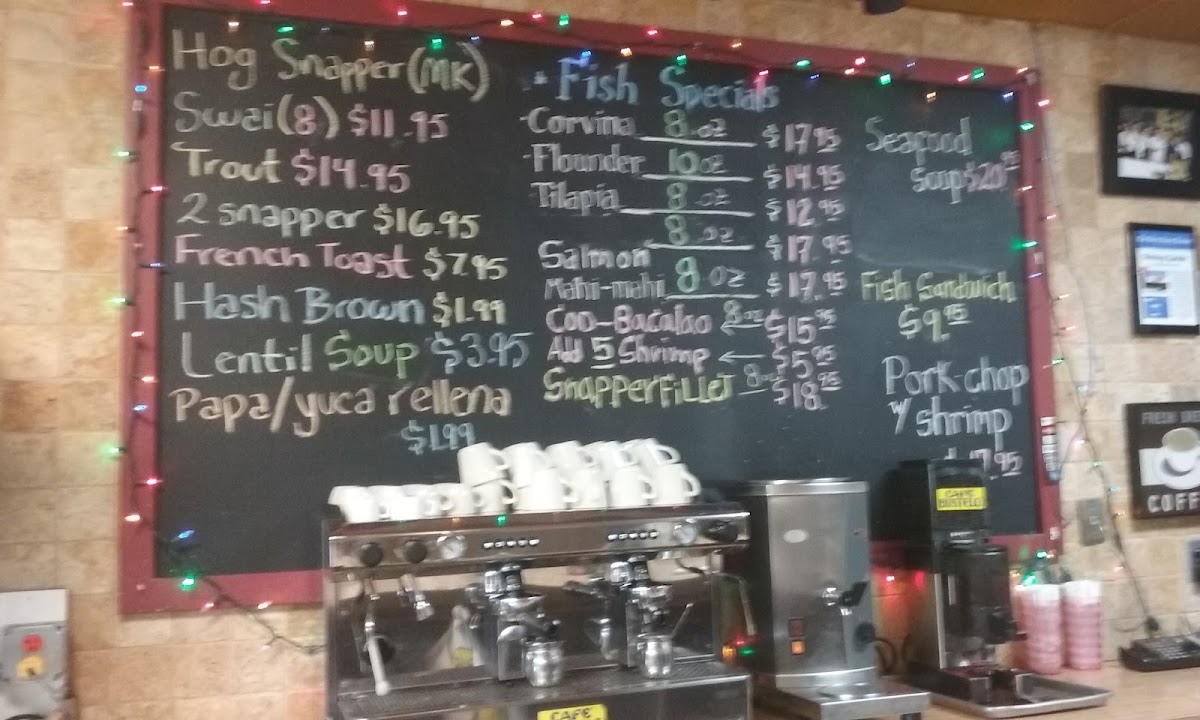 Hog Snapper (MK)
Swai (8) $11.95
Trout $14.95
2 snapper $16.95
French Toast $7.95
Hash Brown $1.99
Lentil Soup $3.95
Papa/yuca rellena
$1.99
Fish Specials
Corvina 8.oz $17.95
Flounder 10oz $14.95
Tilapia 8.oz $12.95
Salmon 8.oz $17.95
Mahi-mahi 8oz $17.95
Coo-Bacalao 8oz $15.95
Add 5 Shrimp $5.95
Snapper Fillet 8oz $18.95
Seafood
Soup $20.95
Fish Sandwich
$9.95
Pork-chop
w/ shrimp
17.95
CAFE
BUSTELO
CAFE
COFFEE